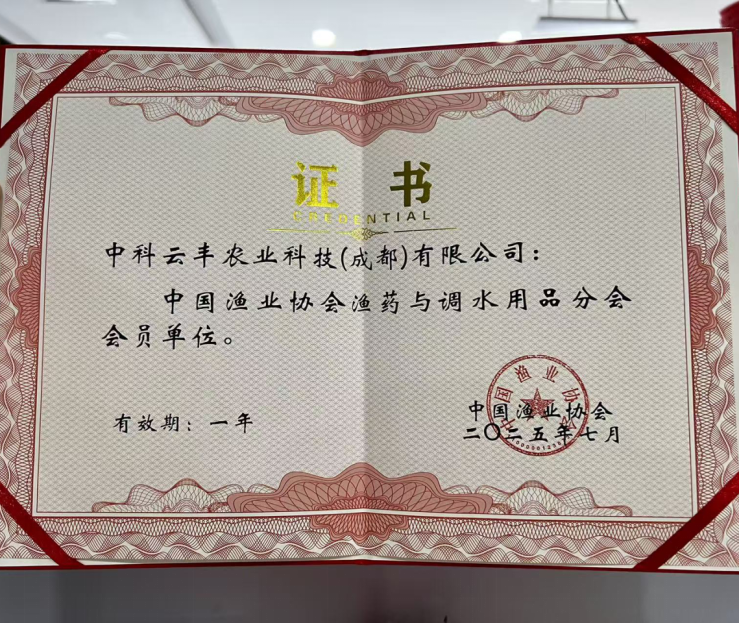 证 书
CREDENTIAL
中科云丰农业科技(成都)有限公司：
中国渔业协会渔药与调水用品分会
会员单位。
中国渔业协会
有效期：一年
中国渔业协会
二〇二五年七月